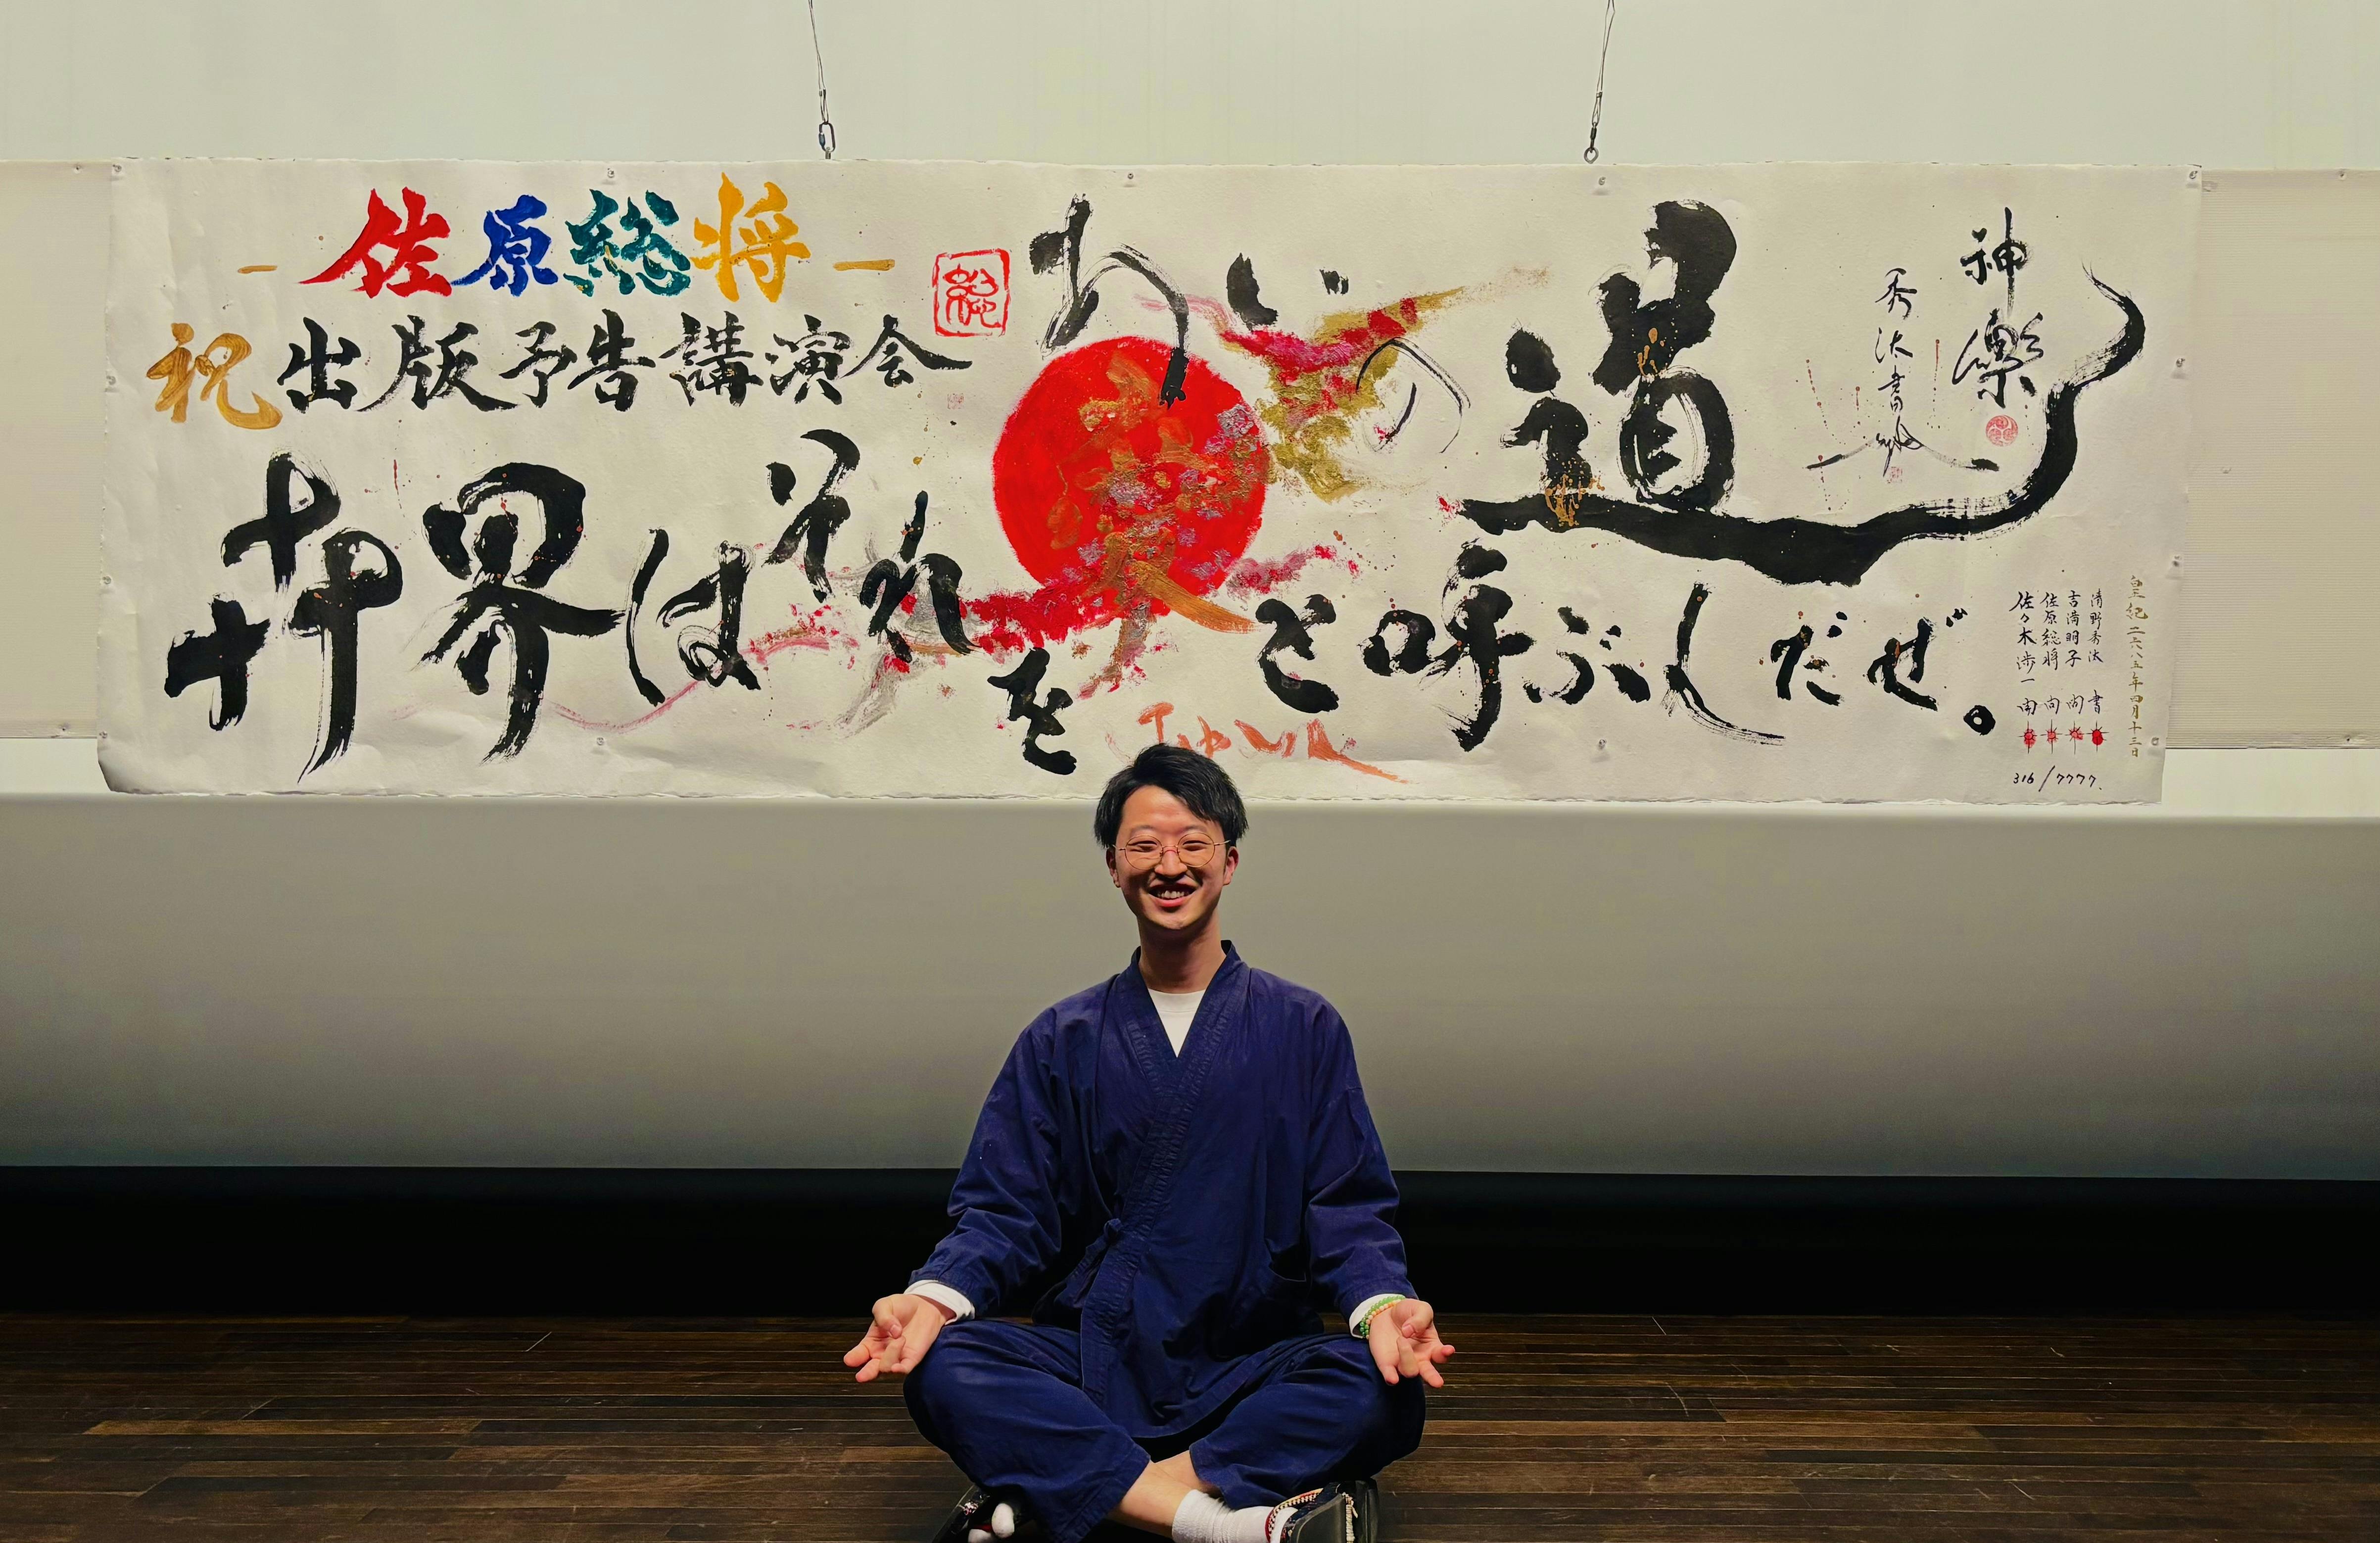 －佐原総将－
祝出版予告講演会
総
あいの道
世界はそれを愛と呼ぶしだぜ。
神樂
秀汰書
皇紀二六八五年四月十三日
清野秀汰 書
吉満明子
佐原総将
佐々木歩一
316/7777.